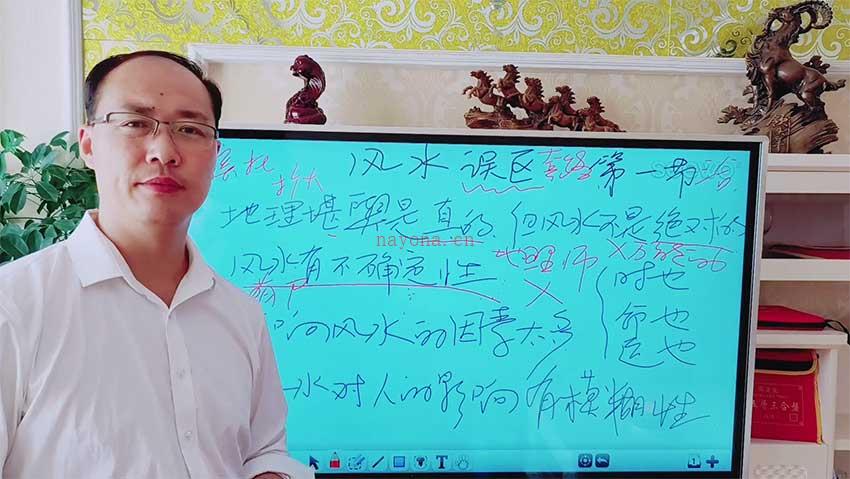 风水误区套路第一节
夸大
地理堪舆是真的,但风水不是绝对的
nayona.cn
风水有不确定性 地理师 ×万能的
× 时也
响风水的因素太多 命也
运也
水对人的影响有模糊性
T
1
三合盘